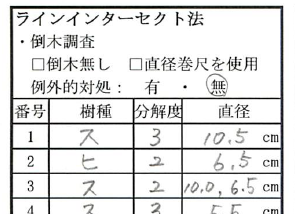 ラインインターセクト法
・倒木調査
□倒木無し □直径巻尺を使用
例外的対処： 有 ・ 無
番号 樹種 分解度 直径
1 ス 3 10.5 cm
2 ヒ 2 6.5 cm
3 ス 2 10.0, 6.5 cm
4 ス 3 5.5 cm